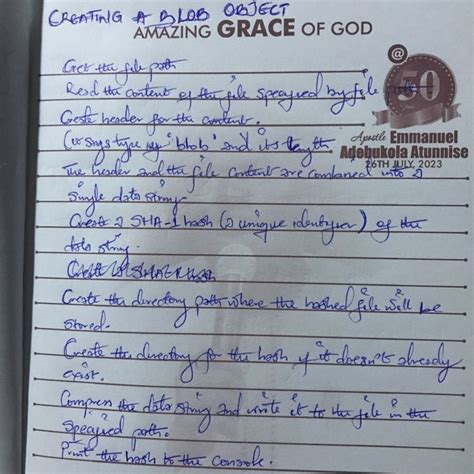 CREATING A BLOB OBJECT
AMAZING GRACE OF GOD
Get the file path
Read the content of the file specified by file path
Create header for the content.
type eg 'blob' and its length
The header and the file content are combined into a
single data string
Create a SHA-1 hash (a unique identifier) of the
data string.
Create the directory path where the hashed file will be
stored.
Create the directory for the hash if it doesn't already
exist.
Compress the data string and write it to the file in the
specified path.
Print the hash to the console.
@
50
Apostle Emmanuel
Adebukola Atunnise
26TH JULY, 2023